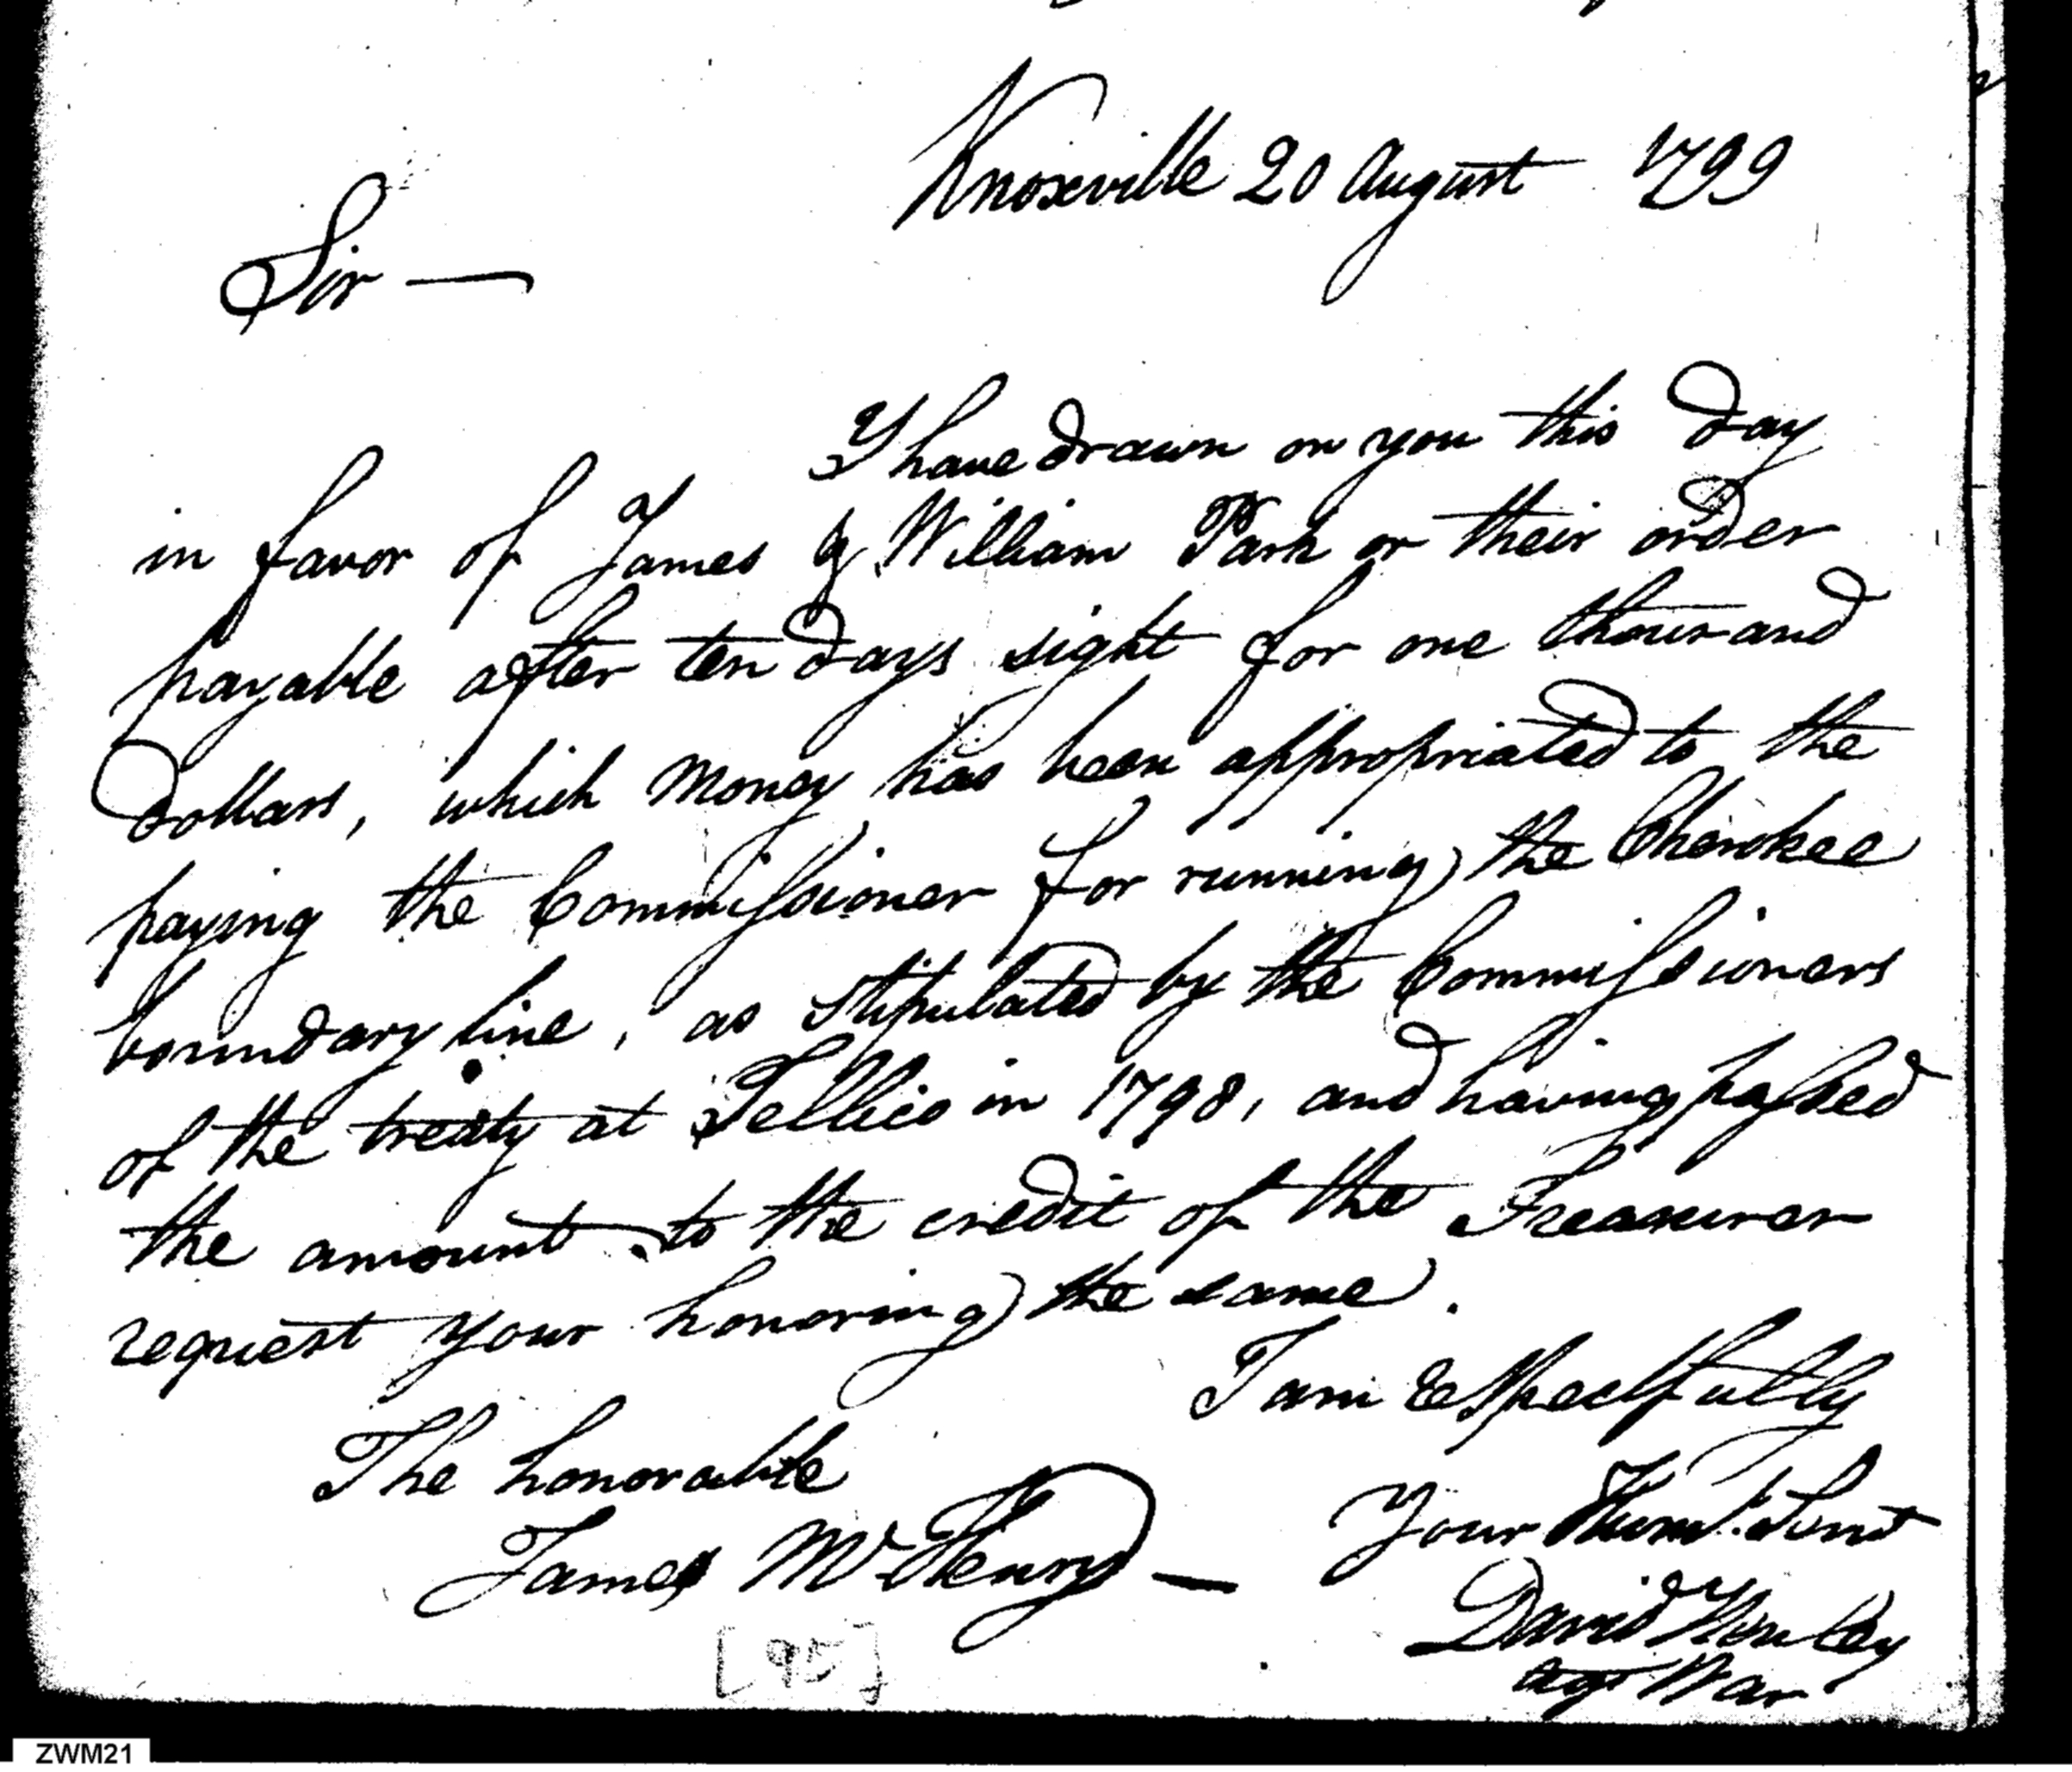 Knoxville 20 August 1799
Sir —
I have drawn on you this day
in favor of James & William Park or their order
payable after ten days sight for one thousand
Dollars, which money has been appropriated to the
paying the Commissioner for running the Cherokee
boundary line, as stipulated by the Commissioners
of the treaty at Tellico in 1798, and having passed
the amount to the credit of the Treasurer
request your honoring the same.
I am Respectfully
The honorable
Your Hum. Servt
James McHenry —
David Henley
Agt War
[95]
ZWM21